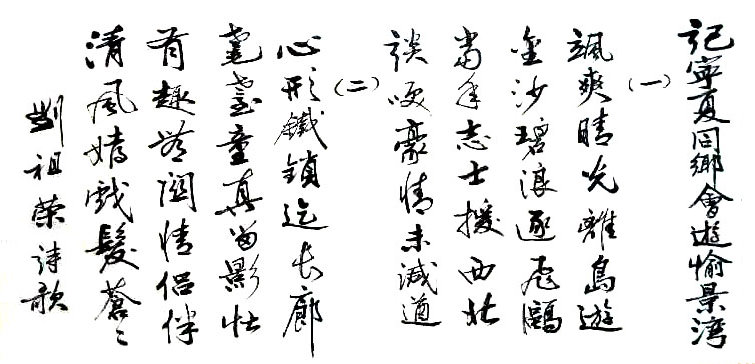 記寧夏同鄉會遊愉景湾
(一)
颯爽晴光離島遊
金沙碧浪逐飛鷗
當年志士援西北
談咲豪情未減遒
(二)
心形鐵鎖迄長廊
耄耋童真留影忙
有趣關情侶伴
清風嬉戲髮蒼々
劉祖榮詩歌